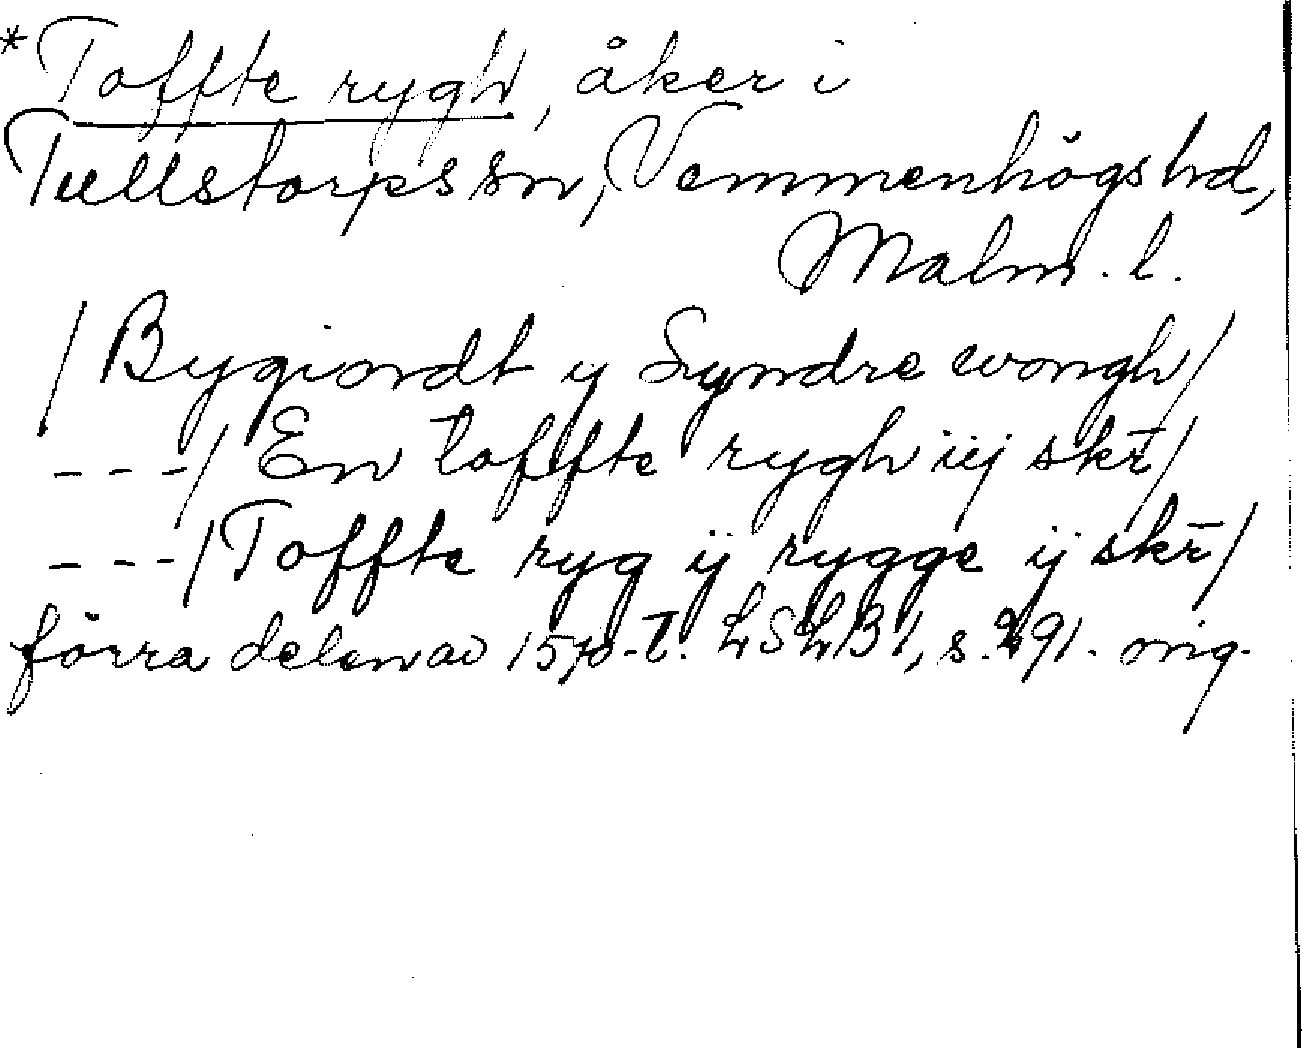 *Toffte rygh, åker i
Tullstorps sn, Vemmenhögs hd,
Malm. l.
/Bygiordt y Syndre wongh/
---/En toffte rygh iij skr̄/
---/Toffte ryg ij rygge ij skr̄/
förra delen av 1570-t. LSLB1, s. 291. orig.